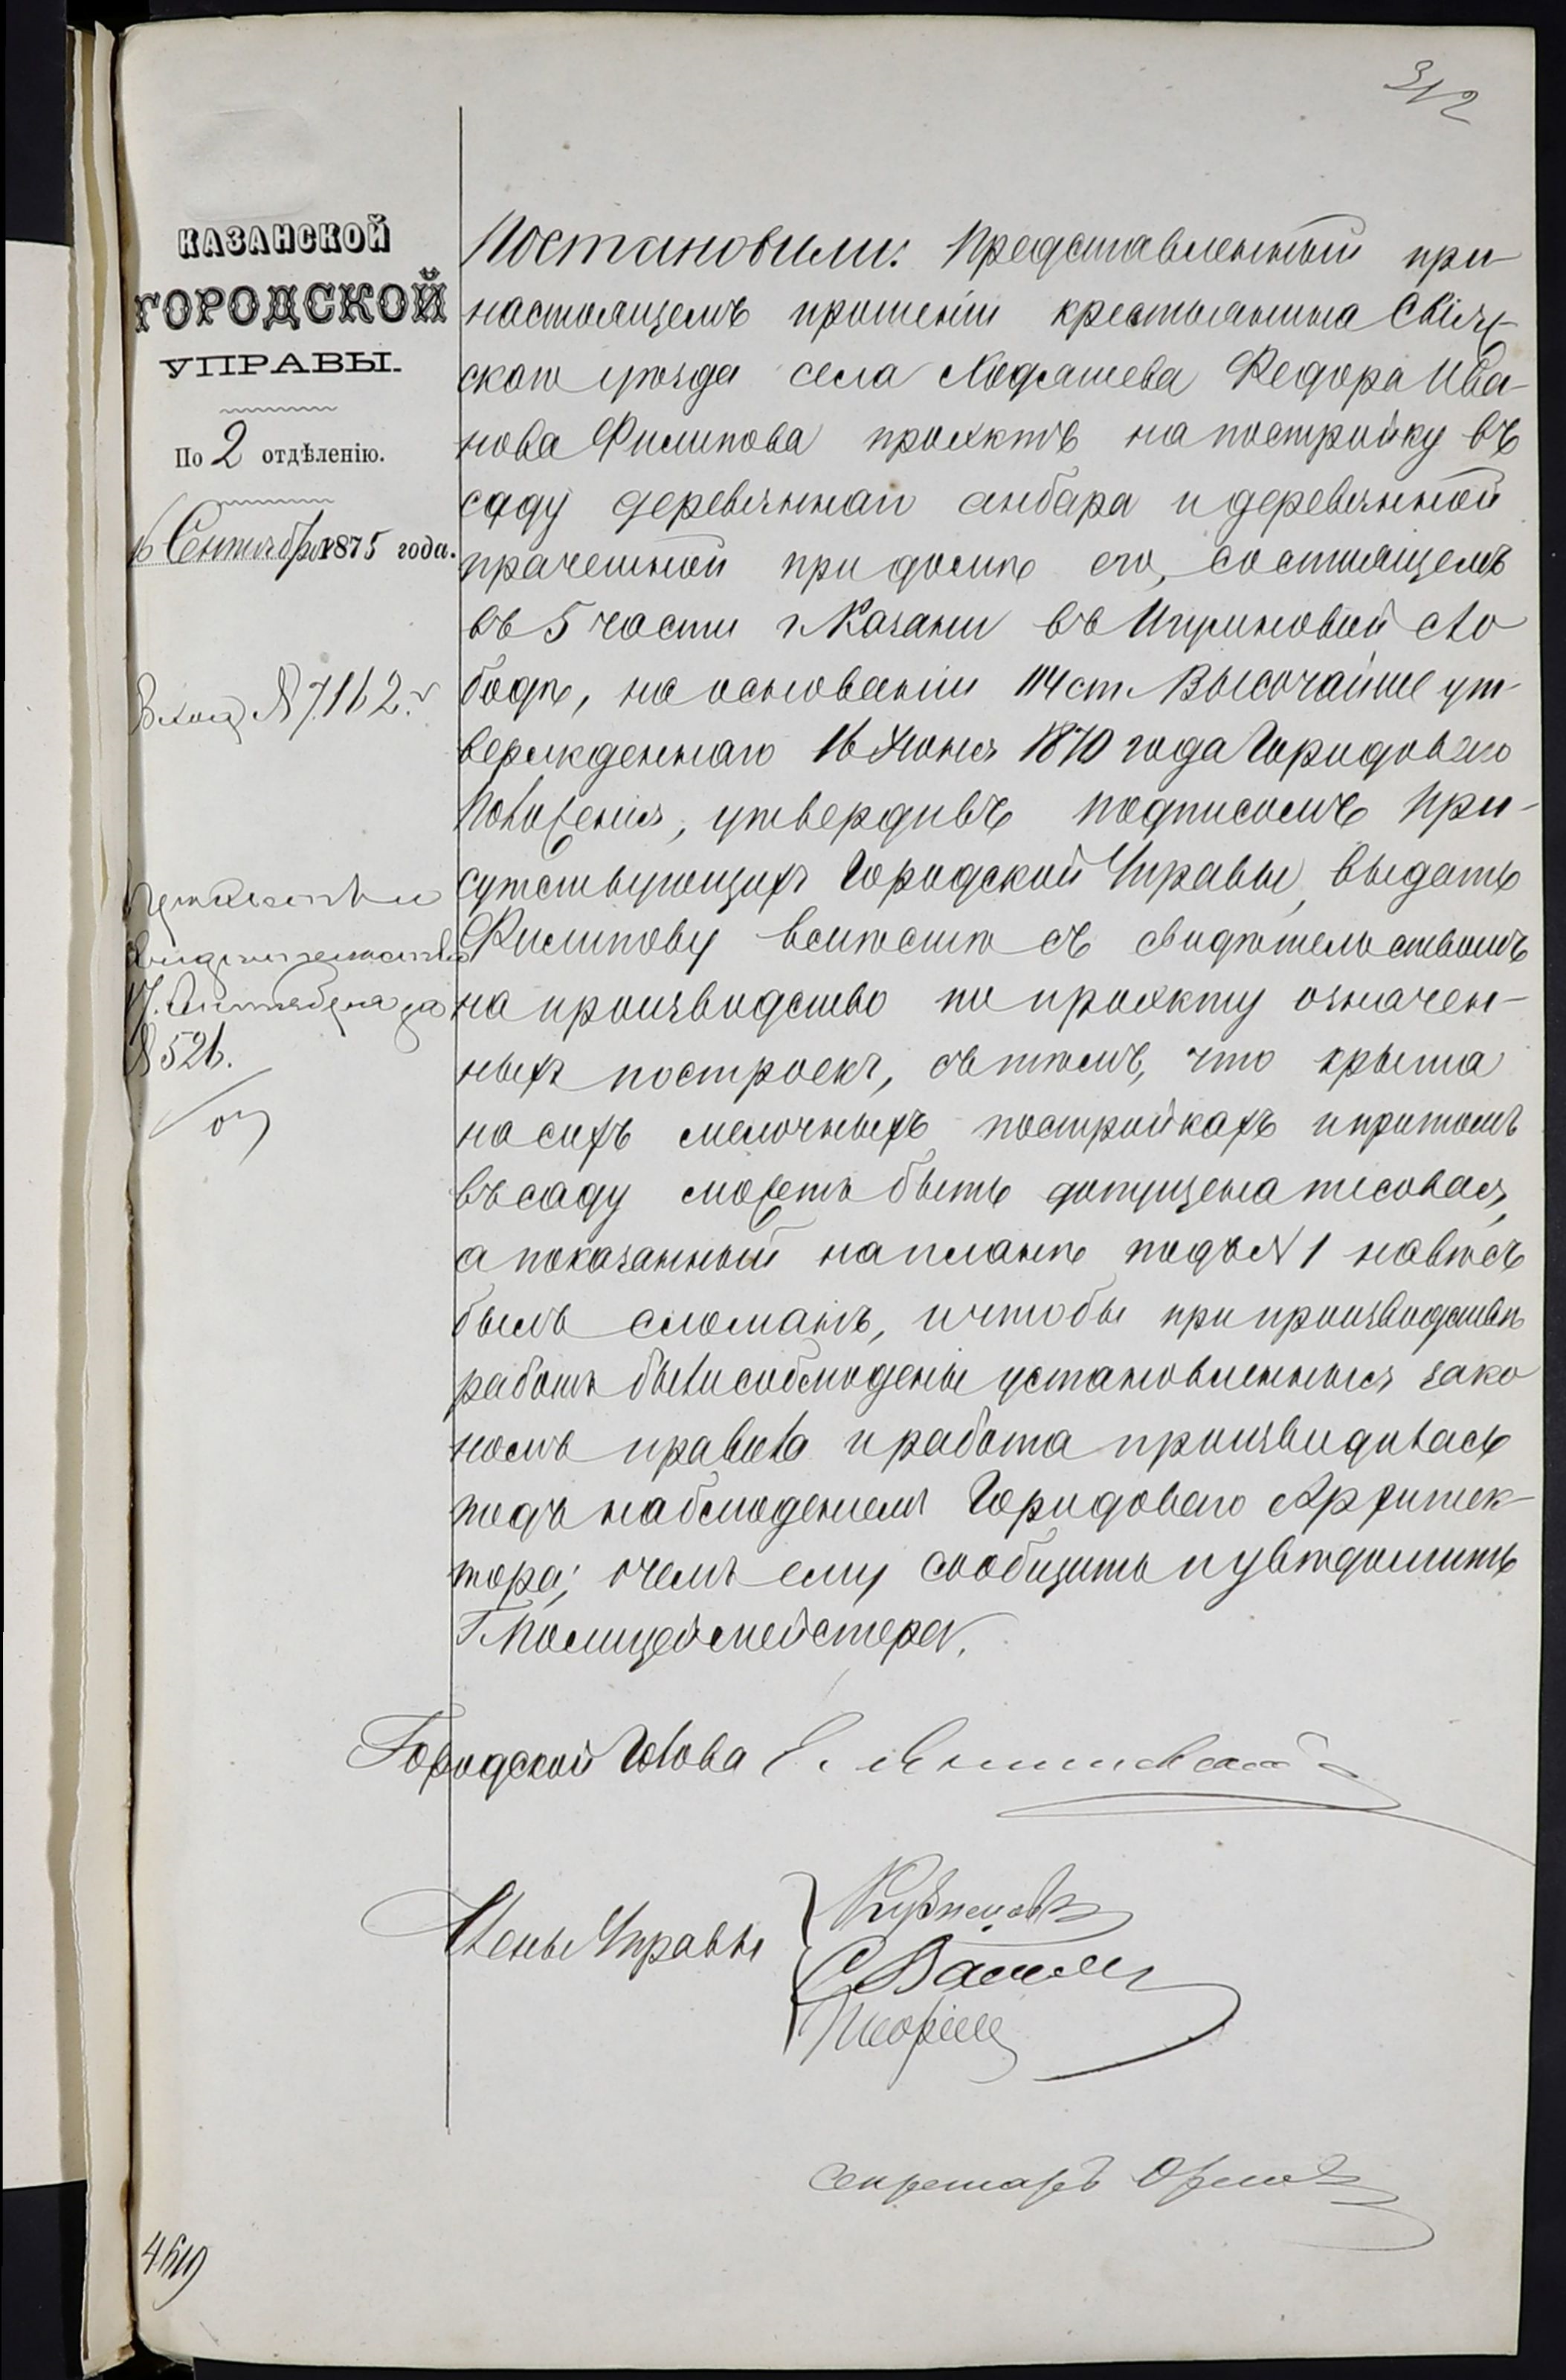 312
КАЗАНСКОЙ
ГОРОДСКОЙ
УПРАВЫ.
По 2 отдѣленію.
16 Сентября 1875 года.
Вход. № 7162.
свидѣтельство
17 Сентября за
№ 526.
Постановили: Представленный при
настоящемъ прошеніи крестьянина Свіяж-
скаго уѣзда села Федора Ива-
нова Филипова проэктъ на постройку въ
саду деревяннаго анбара и деревянной
прачешной при домѣ его, состоящемъ
въ 5 части г. Казани въ Игумновой сло
бодѣ, на основаніи 114 ст. Высочайше ут-
вержденнаго 16 Іюня 1870 года Городоваго
Положенія, утвердивъ подписомъ При-
сутствующихъ Городской Управы, выдать
Филипову вмѣстѣ съ свидѣтельствомъ
на производство по проэкту означен-
ныхъ построекъ, съ тѣмъ, что крыша
на сихъ мелочныхъ постройкахъ и притомъ
въ саду можетъ быть допущена тесовая,
а показанный на планѣ подъ № 1 навѣсъ
былъ сломанъ, и чтобы при производствѣ
работъ были соблюдены установленныя зако
номъ правила и работа производилась
подъ наблюденіемъ Городоваго Архитек-
тора; о чемъ ему сообщить и увѣдомить
Г. Полицеймейстера.
Городской Голова Е. Янишевскій
Члены Управы
Секретарь Орловъ
4619